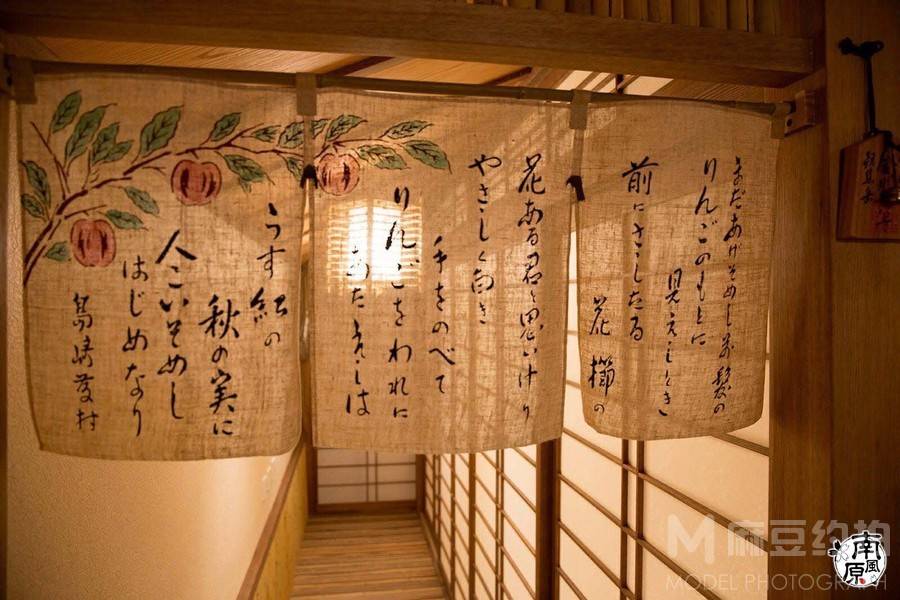 まだあげそめし前髪の
りんごのもとに
見えしとき
前にさしたる
花櫛の
花ある君と思いけり
やさしく白き
手をのべて
りんごをわれに
あたえしは
うす紅の
秋の実に
人こいそめし
はじめなり
島崎藤村
麻豆约拍
MODEL PHOTOGRAPH
南風原